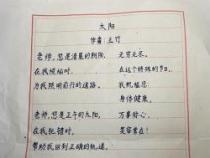 太阳
作者：王竹
老师，您是清晨的朝阳，
在我烦恼时，
为我照明前行的道路。
老师，您是正午的太阳，
在我犯错时，
帮助我回到正确的轨道。
无穷无尽。
在这个特殊的节日，
我祝福您
身体健康，
万事舒心，
笑容常在！